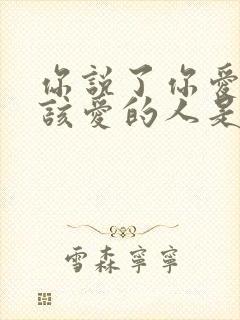 你說了你愛
該愛的人是
雪森寧寧